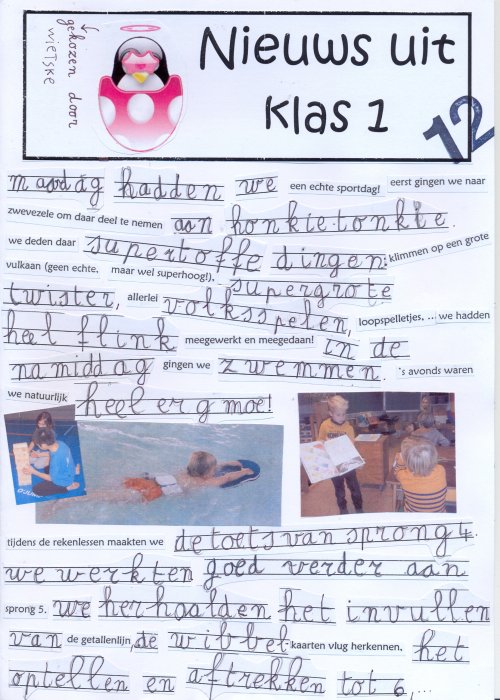 gekozen door
wietske
Nieuws uit
klas 1
12
maandag hadden we een echte sportdag! eerst gingen we naar
zwevezele om daar deel te nemen aan honkie-tonkie.
we deden daar supertoffe dingen: klimmen op een grote
vulkaan (geen echte, maar wel superhoog!), supergrote
twister, allerlei volksspelen, loopspelletjes, ... we hadden
heel flink meegewerkt en meegedaan! in de
namiddag gingen we zwemmen. 's avonds waren
we natuurlijk heel erg moe!
tijdens de rekenlessen maakten we de toets van sprong 4.
we werkten goed verder aan
sprong 5. we herhaalden het invullen
van de getallenlijn, de wibbel-kaarten vlug herkennen, het
optellen en aftrekken tot 6,...